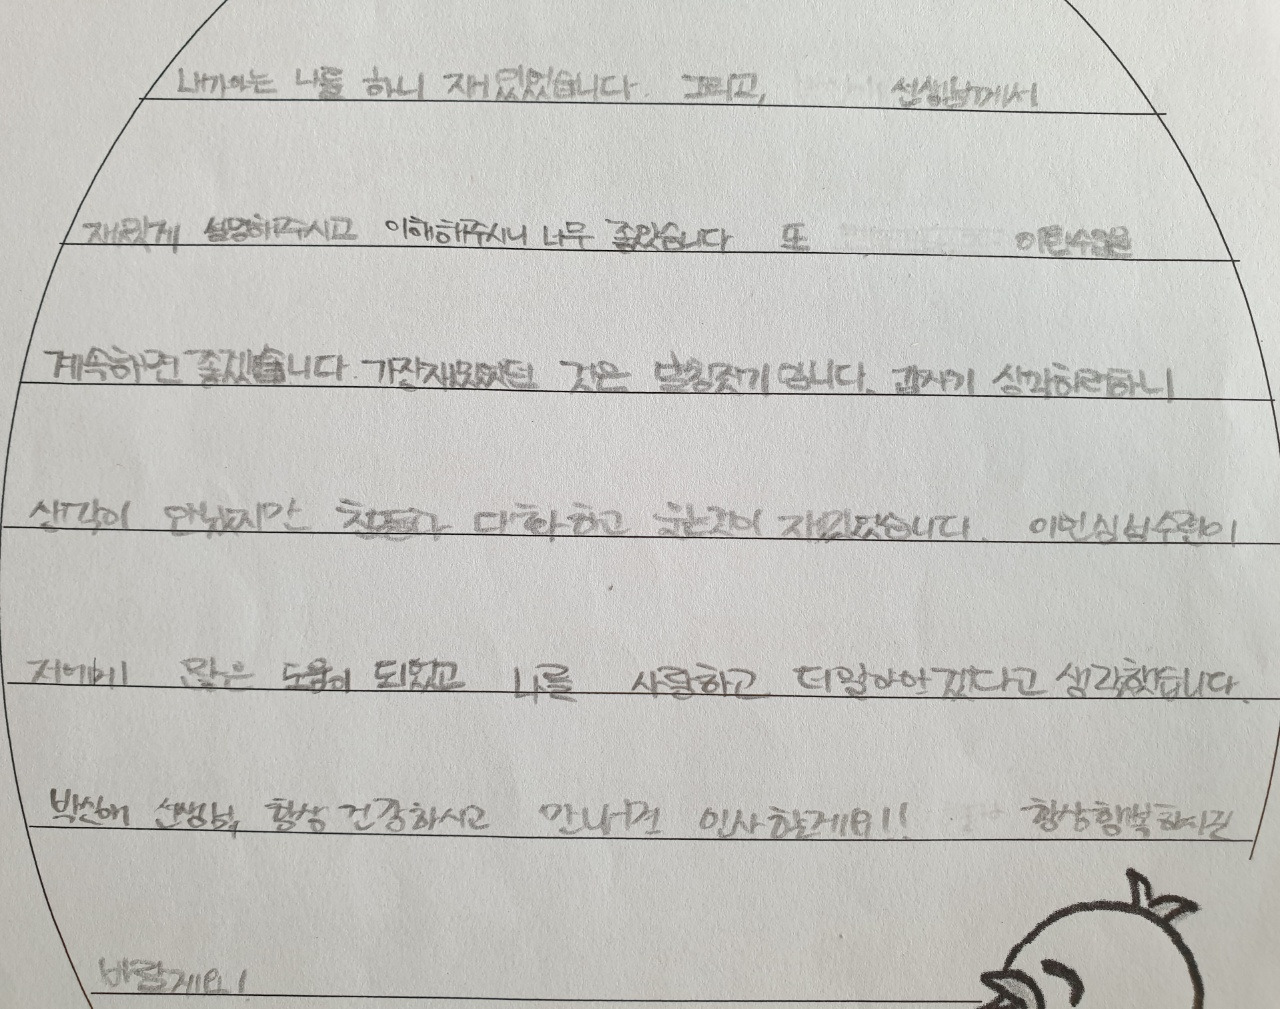 내가아는 나를 하니 재밌었습니다. 그리고, 선생님께서
재밌게 설명해주시고 이해해주시니 너무 좋았습니다 또 이런수업은
계속하면 좋겠습니다. 가장재밌었던 것은 별칭짓기 입니다. 갑자기 생각하려하니
생각이 안났지만 친구들과 대화하고 한것이 재밌었습니다. 이인심성수련이
저에게 많은 도움이 되었고 나를 사랑하고 더알아야겠다고 생각했습니다.
박산해 선생님, 항상 건강하시고 만나면 인사할게요!! 항상행복하시길
바랄게요!